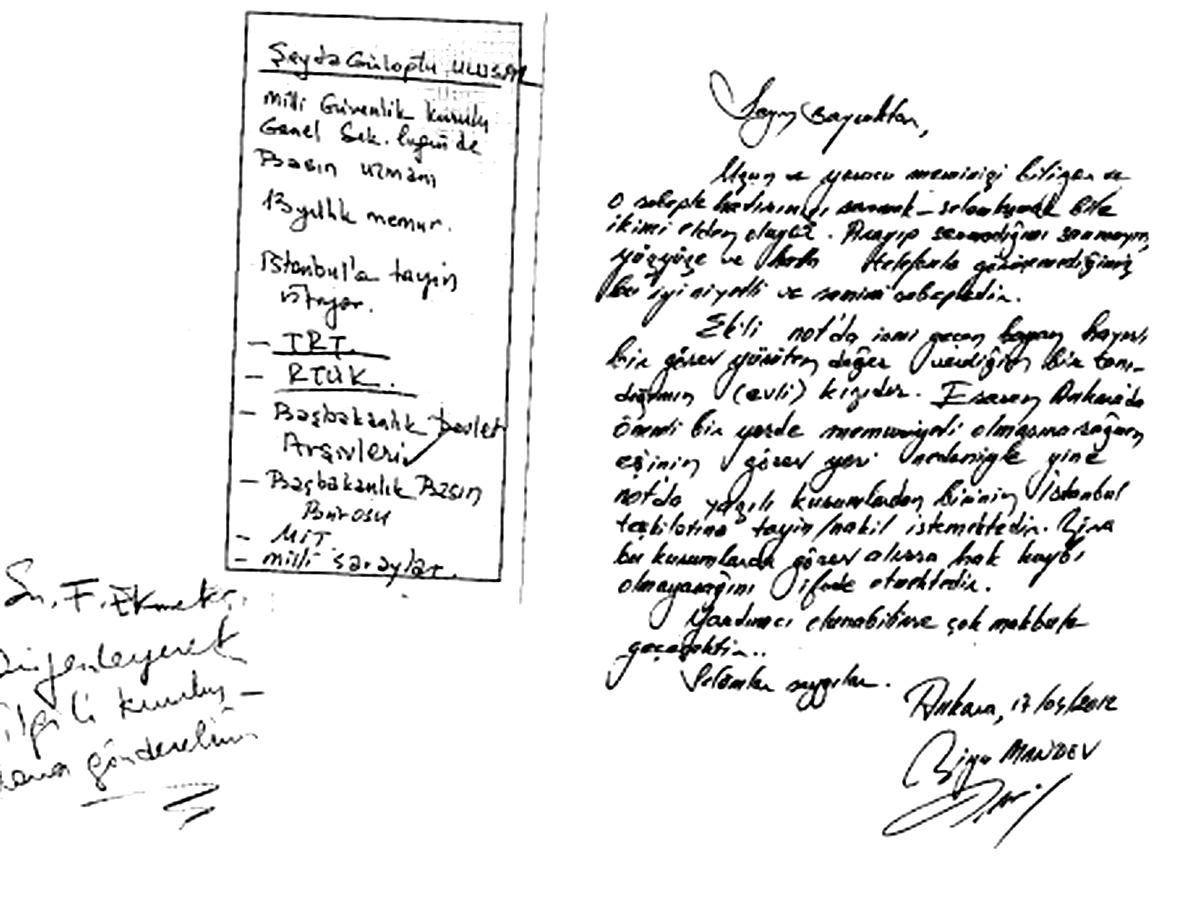 Şeyda Güloptu ULUSAN
Milli Güvenlik kurulu
Genel Sek. liğinde
Basın uzmanı
13 yıllık memur.
İstanbul'a tayin
istiyor.
— TRT.
— RTÜK.
— Başbakanlık Devlet
Arşivleri
— Başbakanlık Basın
Bürosu
— MİT
— milli saraylar.
Sn. F. Ekmekci,
Düzenleyerek
ilgili kuruluş-
lara gönderelim
Sayın Bayraktar,
Uzun ve yorucu mesainizi biliyor ve
o sebeple hatırınızı sormak - selamlaşmak bile
ikimi elden oluyor. Arayıp sormadığımı sanmayın,
yüzyüze ve hatta telefonla görüşemediğimiz
hep iyi niyetli ve samimi sebepledir.
Ekili not'da ismi geçen bayan hayırlı
bir görev yürüten değer verdiğim bir tanı-
dığımın (evli) kızıdır. Esasen Ankara'da
önemli bir yerde memuriyeti olmasına rağmen
eşinin görev yeri nedeniyle yine
not'da yazılı kurumlardan birinin İstanbul
teşkilatına tayin/nakil istemektedir. Zira
bu kurumlarda görev alırsa hak kaybı
olmayacağını ifade etmektedir.
Yardımcı olunabilirse çok makbule
geçecektir..
Selâmlar saygılar.
Ankara, 17/05/2012
Ziya MANDEV